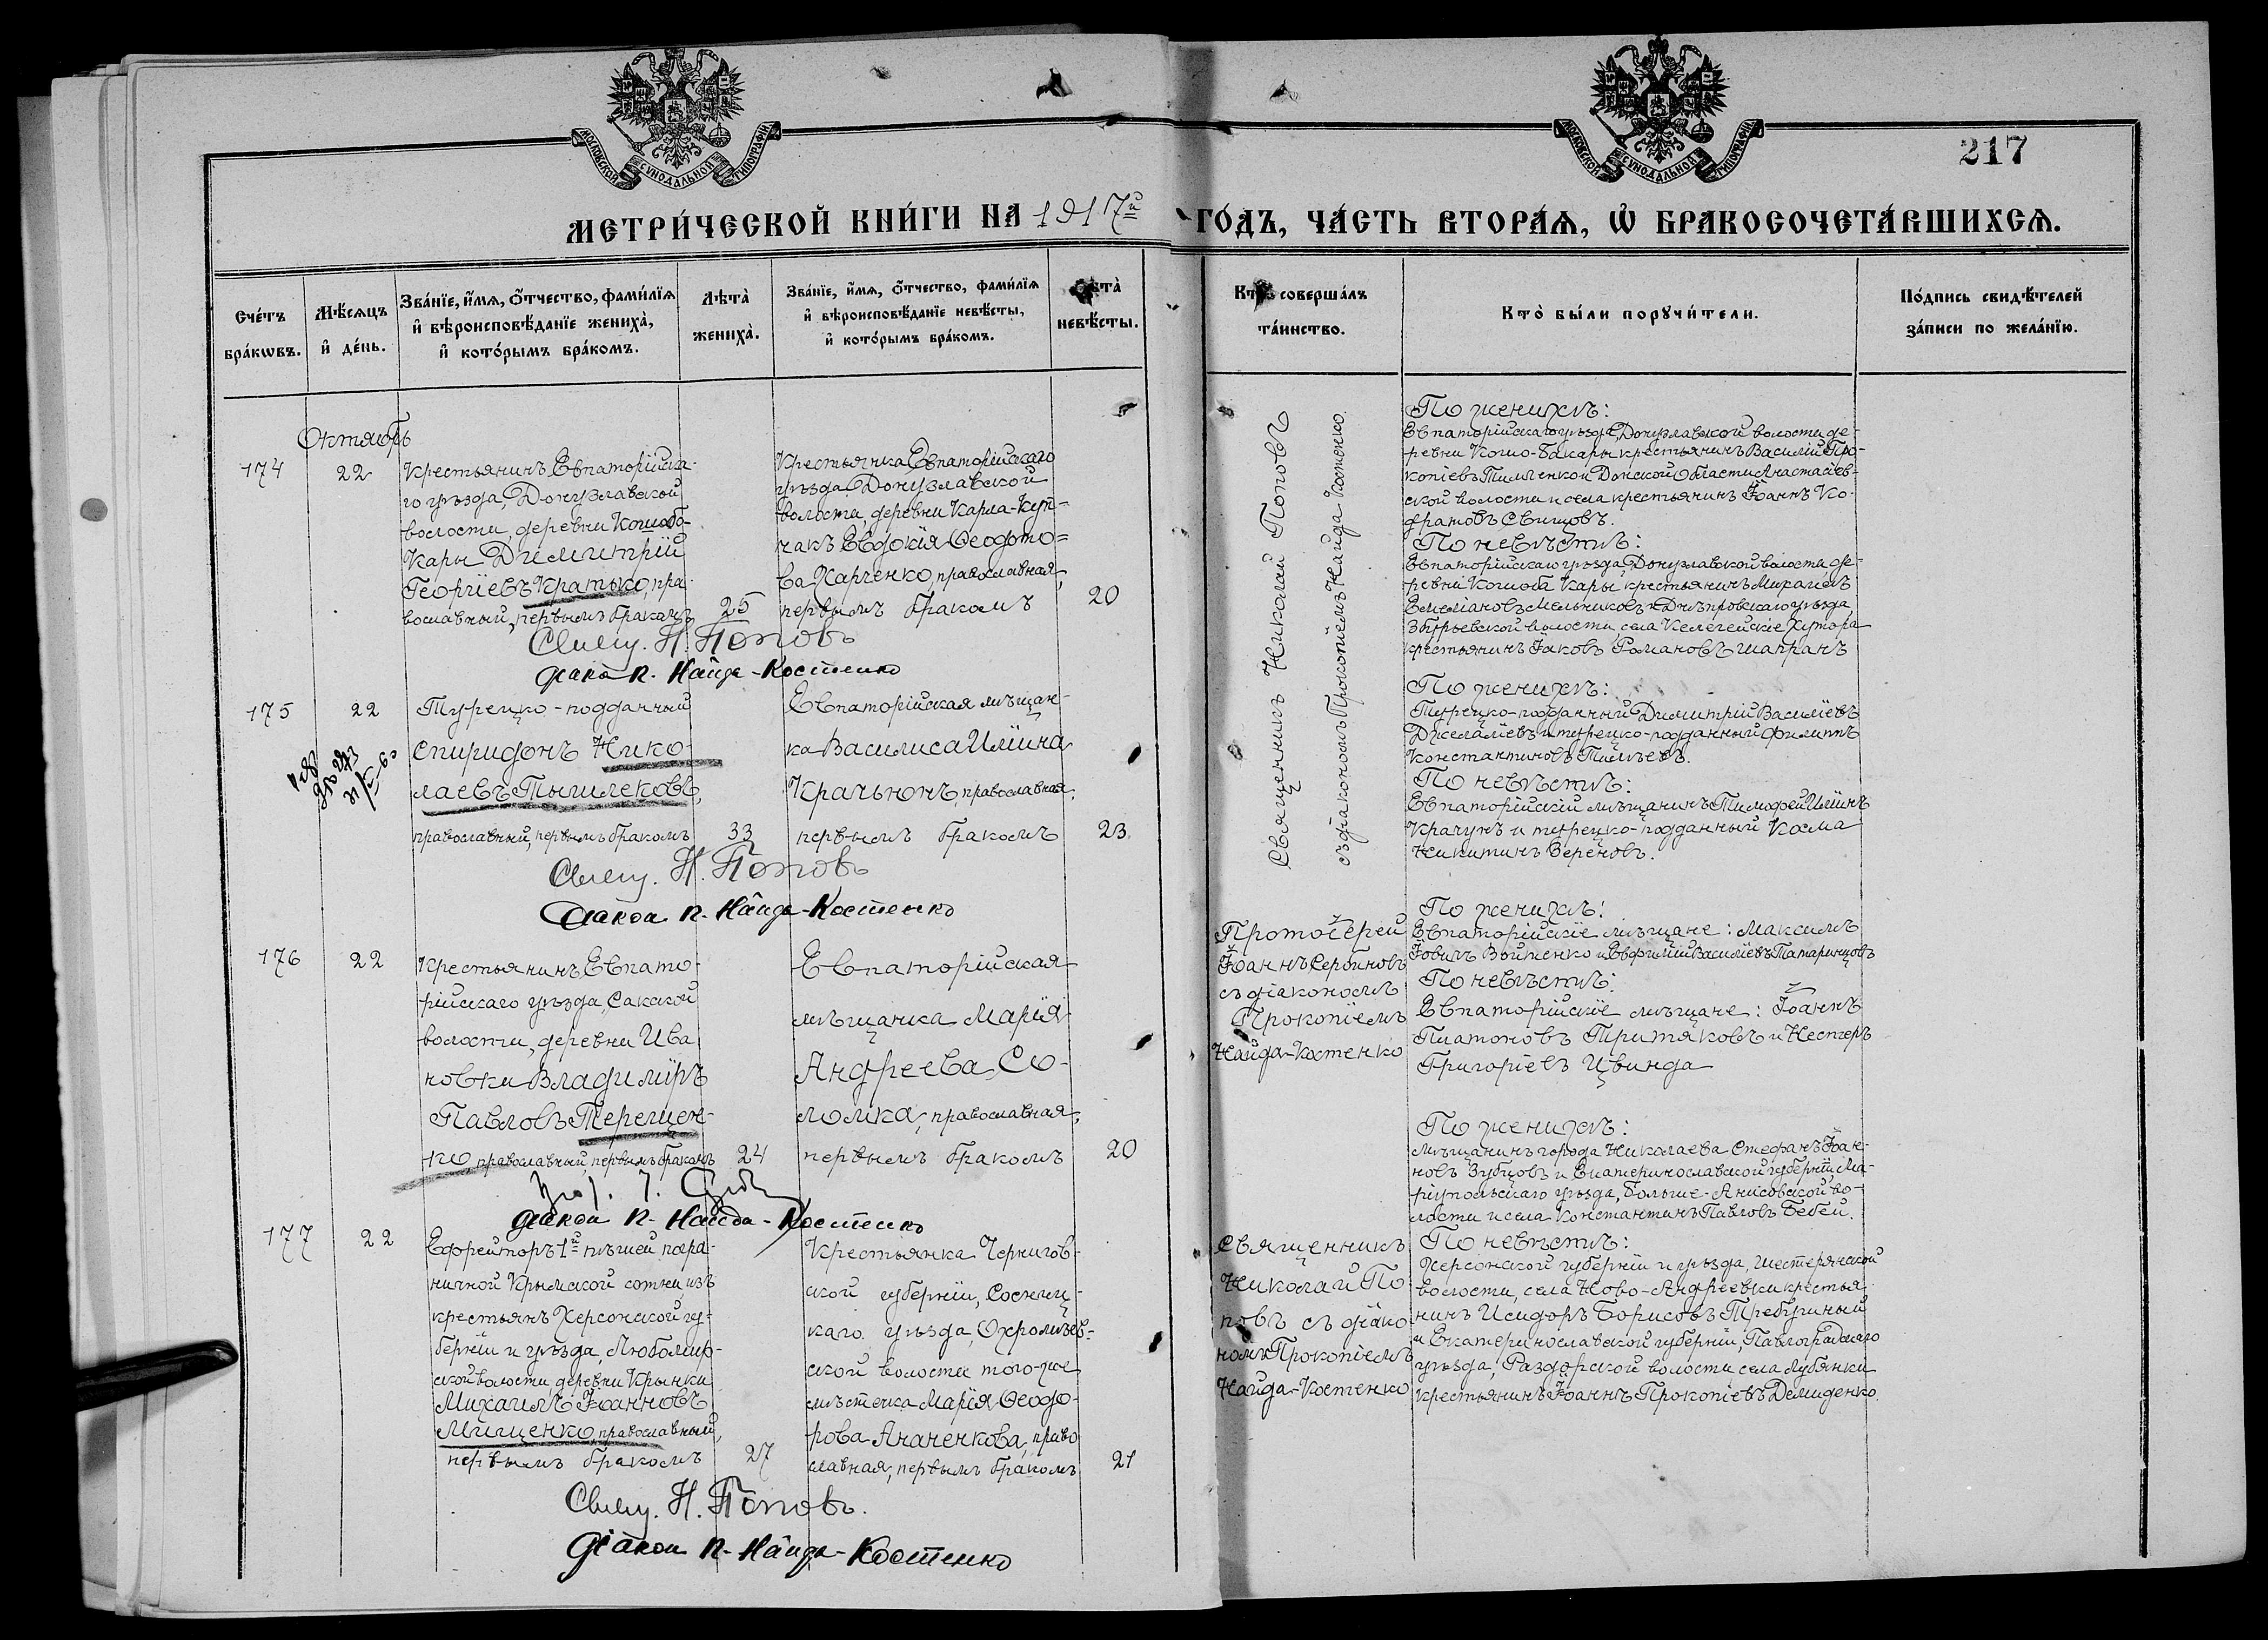 МОСКОВСКОЙ СѴНОДАЛЬНОЙ ТИПОГРАФІИ
МОСКОВСКОЙ СѴНОДАЛЬНОЙ ТИПОГРАФІИ
217
МЕТРИ́ЧЕСКОЙ КНИ́ГИ НА 1917й ГО́ДЪ, ЧА́СТЬ ВТОРА́Я, Ѡ БРАКОСОЧЕТА́ВШИХСЯ.
Сче́тъ
бра́кѡвъ.
Мѣ́сяцъ
и де́нь.
Зва́нїе, и́мя, о́тчество, фами́лїя
и вѣроисповѣ́данїе жениха̀,
и кото́рымъ бра́комъ.
Лѣта̀
жениха̀.
Зва́нїе, и́мя, о́тчество, фами́лїя
и вѣроисповѣ́данїе невѣ́сты,
и кото́рымъ бра́комъ.
Лѣта̀
невѣ́сты.
Кто̀ соверша́лъ
та́инство.
Кто̀ бы́ли поручи́тели.
По́дпись свидѣ́телей
за́писи по жела́нїю.
Октябрь
174
22
Крестьянинъ Евпаторійска-
го уѣзда, Донузлавской
волости, деревни Кошоба-
Кары Димитрій
Георгіевъ Кратько, пра-
вославный, первымъ бракомъ
25
Крестьянка Евпаторійскаго
уѣзда, Донузлавской
волости, деревни Карла-Куп-
чакъ Евдокія Ѳеодото-
ва Харченко, православная,
первымъ бракомъ
20
Свящ. Н. Поповъ
діакон П. Найда-Костенко
Священникъ Николай Поповъ
съ діакономъ Прокопіемъ Найда Костенко.
По женихѣ:
Евпаторійскаго уѣзда, Донузлавской волости, де-
ревни Кошо-Бакары крестьянинъ Василій Про-
копіевъ и Донской Области Анастасіев-
ской волости и села крестьянинъ Іоаннъ Ко-
дратовъ Свищовъ.
По невѣстѣ:
Евпаторійскаго уѣзда, Донузлавской волости, де-
ревни Кошоба Кары крестьянинъ Михаилъ
Емеліановъ Мельниковъ и Днѣпровскаго уѣзда,
Збурьевской волости, села Келегейскіе Хутора
крестьянинъ Іаковъ Романовъ Шапранъ
175
22
Турецко-подданный
Спиридонъ Нико-
лаевъ Тышлековъ,
православный, первымъ бракомъ
33
Евпаторійская мѣщан-
ка Василиса Иліина
Крачьюнъ, православная,
первымъ бракомъ
23.
Свящ. Н. Поповъ
Діакон П. Найда-Костенко
По женихѣ:
Турецко-подданный Димитрій Василіевъ
Джелаліевъ и турецко-подданный Филиппъ
Константиновъ
По невѣстѣ:
Евпаторійскій мѣщанинъ Тимофей Иліинъ
Крачунъ и турецко-подданный Косма
Никитинъ Вереновъ.
176
22
Крестьянинъ Евпато-
рійскаго уѣзда, Сакской
волости, деревни Ива
новки Владиміръ
Павловъ Терещен-
ко, православный, первымъ бракомъ
24
Евпаторійская
мѣщанка Марія
Андреева Со-
ломка, православная,
первымъ бракомъ
20
діакон П. Найда-Костенко
Протоіерей
Іоаннъ Сербиновъ
съ діакономъ
Прокопіемъ
Найда-Костенко
По женихѣ:
Евпаторійскіе мѣщане: Максимъ
Іовимъ Войтенко и Евфимій Василіевъ Татаринцовъ
По невѣстѣ:
Евпаторійскіе мѣщане: Іоаннъ
Платоновъ Третяковъ и Несторъ
Григоріевъ Цвинда
177
22
Ефрейторъ 1й пѣшей погра-
ничной Крымской сотни, изъ
крестьянъ Херсонской гу-
берніи и уѣзда, Любомир-
ской волости деревни Крынки
Михаилъ Іоанновъ
Мищенко, православный,
первымъ бракомъ
27
Крестьянка Чернигов-
ской губерніи, Сосниц-
каго уѣзда, Охромѣев-
ской волости того-же
мѣстечка Марія Ѳеодо-
рова Ананенкова, право
славная, первымъ бракомъ
21
Свящ. Н. Поповъ.
Діакон П. Найда-Костенко
Священникъ
Николай По
повъ съ діако
номъ Прокопіемъ
Найда-Костенко
По женихѣ:
мѣщанинъ города Николаева Стефанъ Іоан-
новъ Зубцовъ и Екатеринославской губерніи, Ма-
ріупольскаго уѣзда, Больше-Анисовской во-
лости и села Константинъ Павловъ Бебей.
По невѣстѣ:
Херсонской губерніи и уѣзда, Шестернской
волости, села Ново-Андреевки крестья
нинъ Исидоръ Борисовъ Требушный
и Екатеринославской губерніи, Павлоградскаго
уѣзда, Раздорской волости, села Лубянки
крестьянинъ Іоаннъ Прокопіевъ Демиденко.